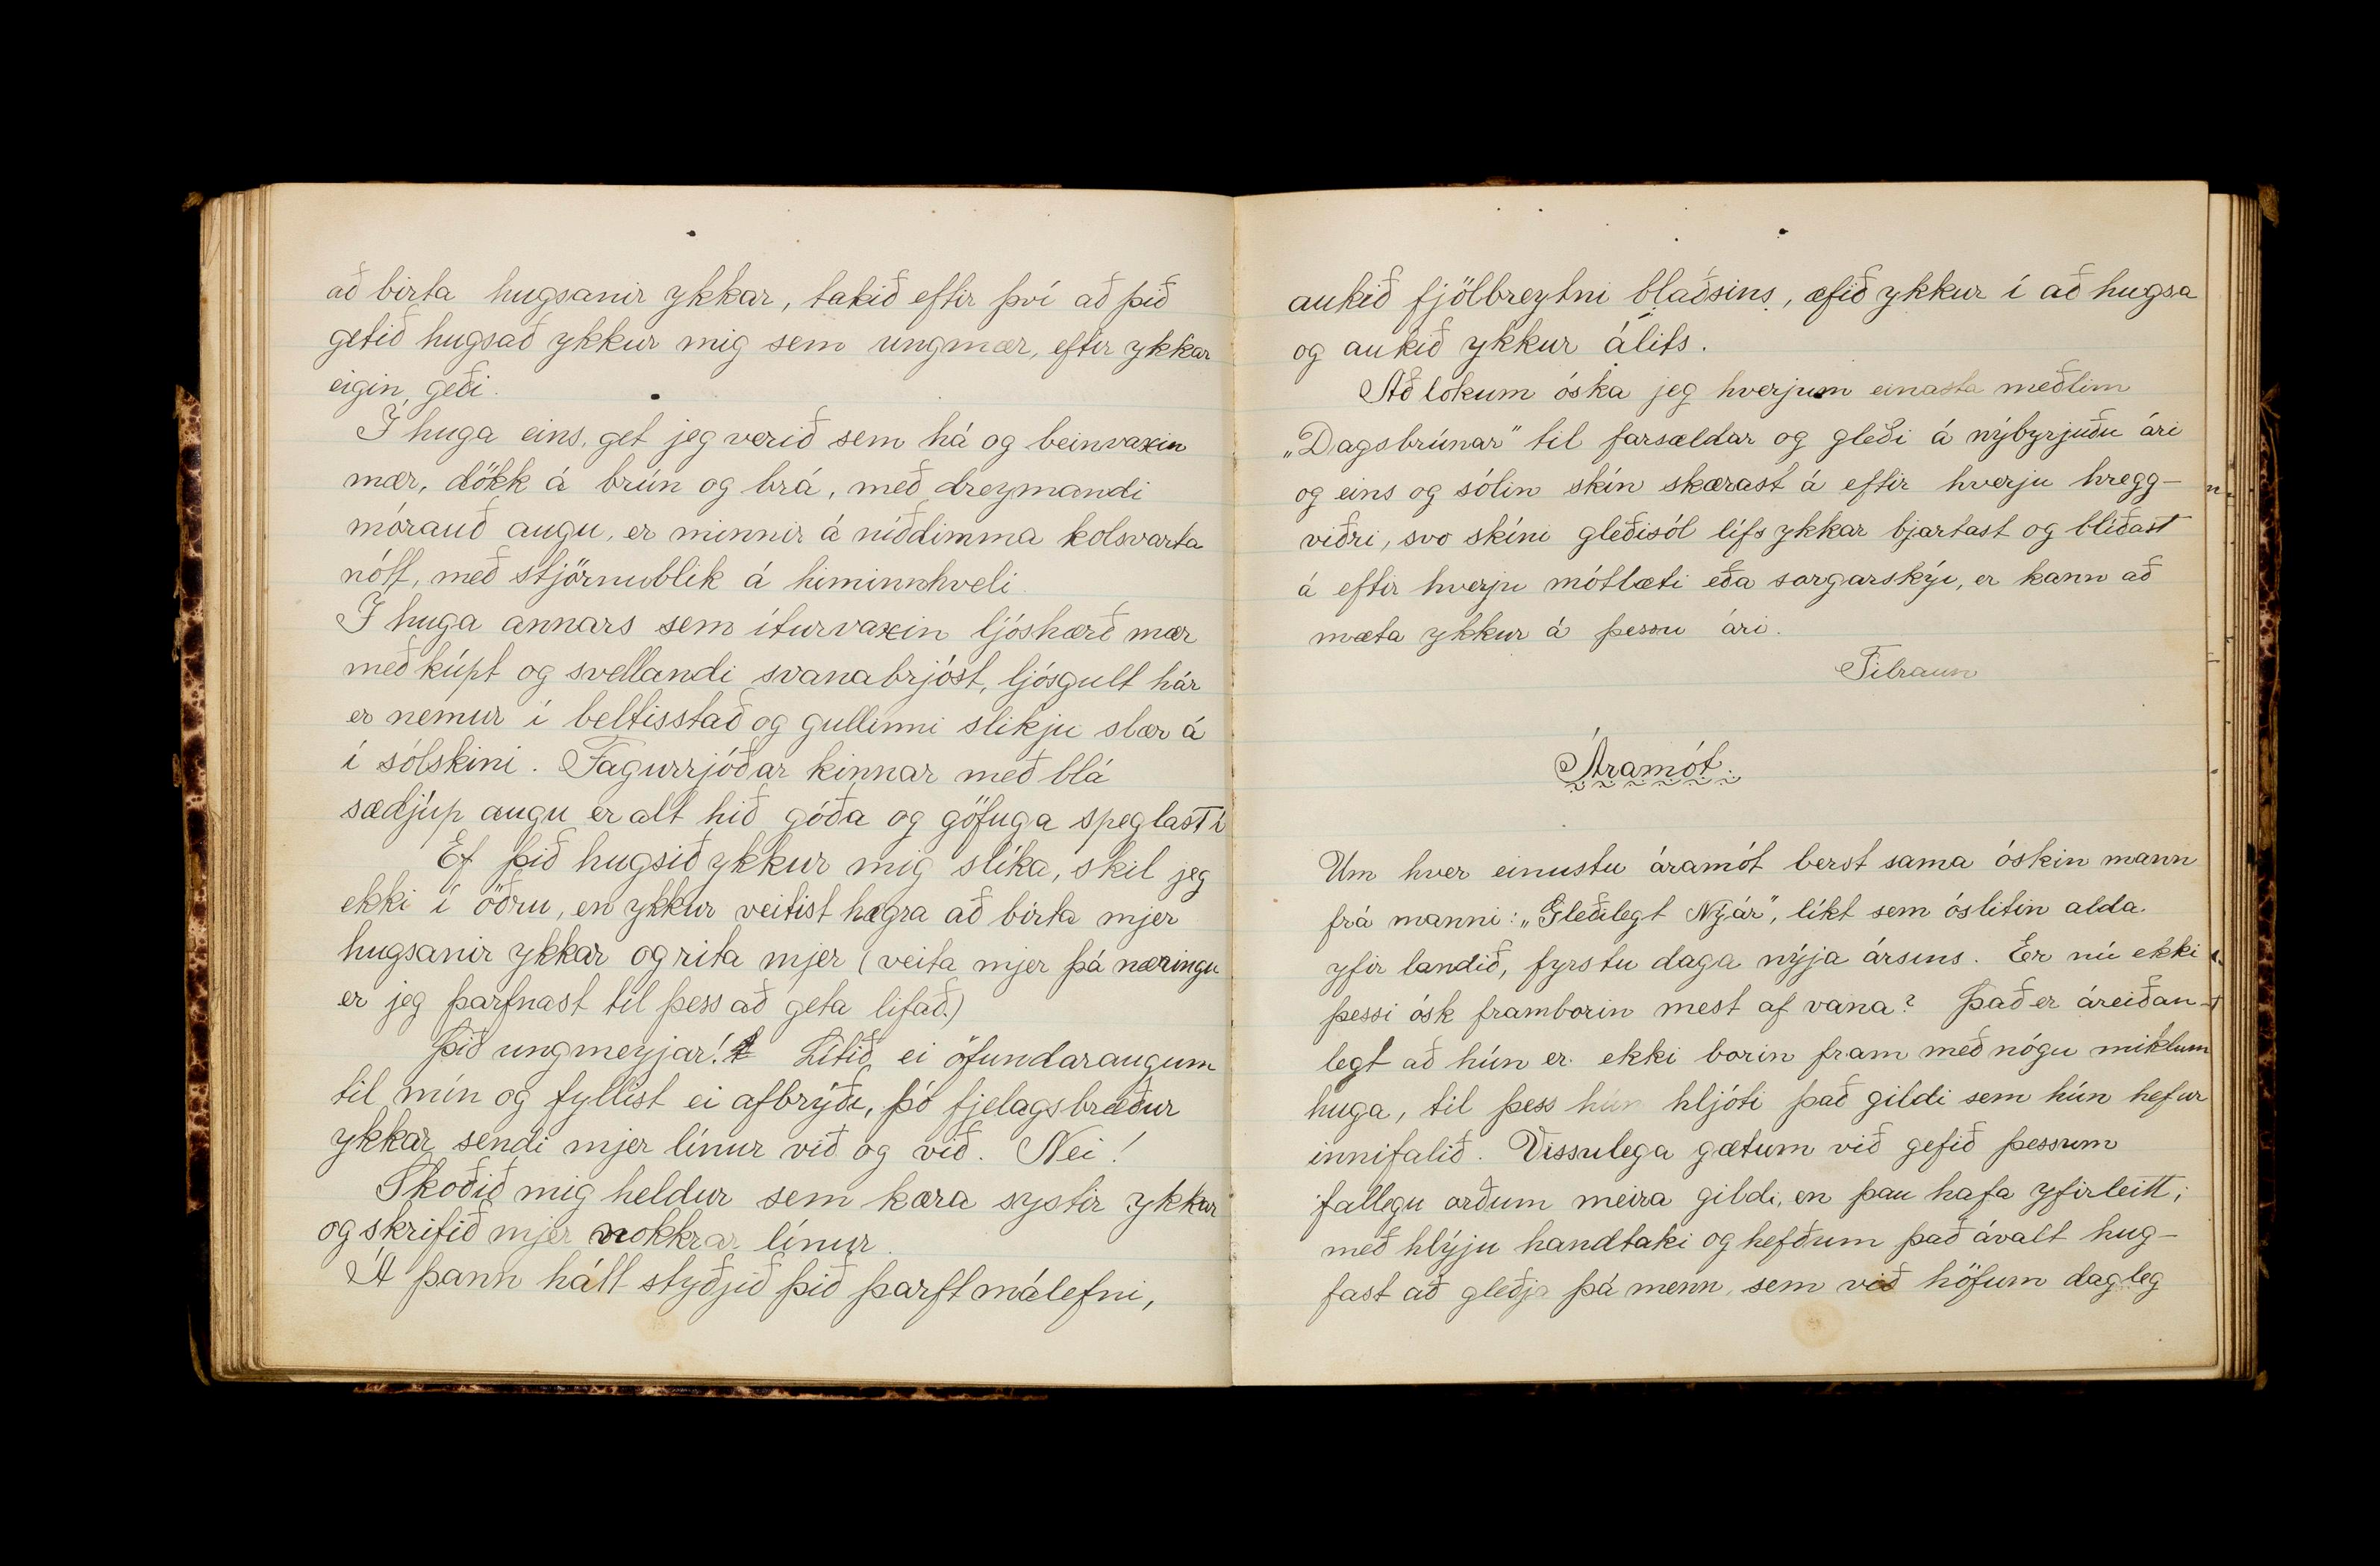 að birta hugsanir ykkar, takið eftir því að þið
getið hugsað ykkur mig sem ungmær, eftir ykkar
eigin geði.
Í huga eins, get jeg verið sem há og beinvaxin
mær, dökk á brún og brá, með dreymandi
mórauð augu, er minnir á niðdimma kolsvarta
nótt, með stjörnublik á himinnhveli.
Í huga annars sem íturvaxin ljóshærð mær
með kúpt og svellandi svanabrjóst, ljósgult hár
er nemur í beltisstað og gullinni slikju slær á
í sólskini. Fagurrjóðar kinnar með blá
sædjúp augu er alt hið góða og göfuga speglast í
Ef þið hugsið ykkur mig slíka, skil jeg
ekki í öðru, en ykkur veitist hægra að birta mjer
hugsanir ykkar og rita mjer (veita mjer þá næringu
er jeg þarfnast til þess að geta lifað.)
Þið ungmeyjar! Lítið ei öfundaraugum
til mín og fyllist ei afbrýði, þó fjelagsbræður
ykkar sendi mjer línur við og við. Nei!
Skoðið mig heldur sem kæra systir ykkar
og skrifið mjer nokkrar línur.
Á þann hátt styðjið þið þarft málefni,
aukið fjölbreytni blaðsins, æfið ykkur í að hugsa
og aukið ykkur álits.
Að lokum óska jeg hverjum einasta meðlim
„Dagsbrúnar" til farsældar og gleði á nýbyrjuðu ári
og eins og sólin skín skærast á eftir hverju hregg-
viðri, svo skíni gleðisól lífs ykkar bjartast og blíðast
á eftir hverju mótlæti eða sorgarskýi, er kann að
mæta ykkur á þessu ári.
Tilraun
Áramót.
Um hver einustu áramót berst sama óskin mann
frá manni: „Gleðilegt Nýár", líkt sem óslitin alda
yfir landið, fyrstu daga nýja ársins. Er nú ekki
þessi ósk framborin mest af vana? Það er áreiðan-
legt að hún er ekki borin fram með nógu miklum
huga, til þess hún hljóti það gildi sem hún hefur
innifalið. Vissulega gætum við gefið þessum
fallegu orðum meira gildi, en þau hafa yfirleitt;
með hlýju handtaki og hefðum það ávalt hug-
fast að gleðja þá menn, sem við höfum dagleg